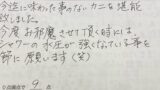 今迄に味わった事のないカニを堪能
致しました。
今度お邪魔させて頂く時には、
シャワーの水圧が強くなっている事を
節に願います(笑)
9 点